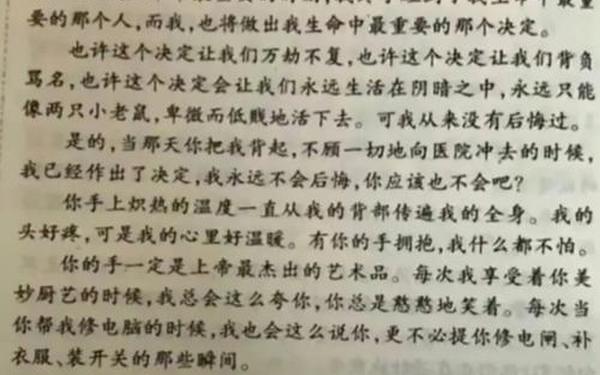 要的那个人,而我,也将做出我生命中最重要的那个决定。
也许这个决定让我们万劫不复,也许这个决定让我们背负
骂名,也许这个决定会让我们永远生活在阴暗之中,永远只能
像两只小老鼠,卑微而低贱地活下去。可我从来没有后悔过。
是的,当那天你把我背起,不顾一切地向医院冲去的时候,
我已经作出了决定,我永远不会后悔,你应该也不会吧?
你手上炽热的温度一直从我的背部传遍我的全身。我的
头好疼,可是我的心里好温暖。有你的手拥抱,我什么都不怕。
你的手一定是上帝最杰出的艺术品。每次我享受着你美
妙厨艺的时候,我总会这么夸你,你总是憨憨地笑着。每次当
你帮我修电脑的时候,我也会这么说你,更不必提你修电闸、补
衣服、装开关的那些瞬间。